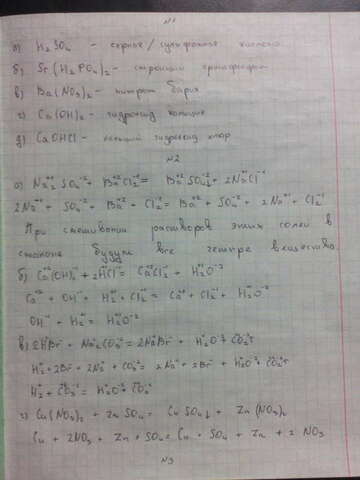 N1
а) H₂SO₄ - серная / сульфатная кислота
б) Sr(H₂PO₄)₂ - стронций
в) Ba(NO₃)₂ - нитрат бария
г) Ca(OH)₂ - гидроксид кальция
д) CaOHCl - кальций гидроксид хлор
N2
а) Na₂⁺¹SO₄⁻² + Ba⁺²Cl₂⁻¹ = Ba⁺²SO₄⁻²↓ + 2Na⁺¹Cl⁻¹
2Na⁺¹ + SO₄⁻² + Ba⁺² + Cl₂⁻¹ = Ba⁺² + SO₄⁻² + 2Na⁺¹ + Cl₂⁻¹
При смешивании растворов этих солей в
стакане будут все четыре вещества.
б) Ca⁺²(OH)₂⁻¹ + 2H⁺Cl⁻¹ = Ca⁺²Cl₂⁻¹ + H₂⁺O⁻²
Ca⁺² + OH⁻ + H₂⁺ + Cl₂⁻¹ = Ca⁺² + Cl₂⁻ + H₂⁺O⁻²
OH⁻ + H₂⁺ = H₂⁺O⁻²
в) 2H⁺Br⁻ + Na₂⁺CO₃⁻² = 2Na⁺Br⁻ + H₂⁺O⁻² + CO₂↑
H₂⁺ + 2Br⁻ + 2Na⁺ + CO₃⁻² = 2Na⁺ + 2Br⁻ + H₂⁺O⁻² + CO₂↑
H₂⁺ + CO₃⁻² = H₂⁺O⁻² + CO₂
г) Cu(NO₃)₂ + ZnSO₄ = CuSO₄↓ + Zn(NO₃)₂
Cu + 2NO₃ + Zn + SO₄ = Cu + SO₄ + Zn + 2NO₃
N3